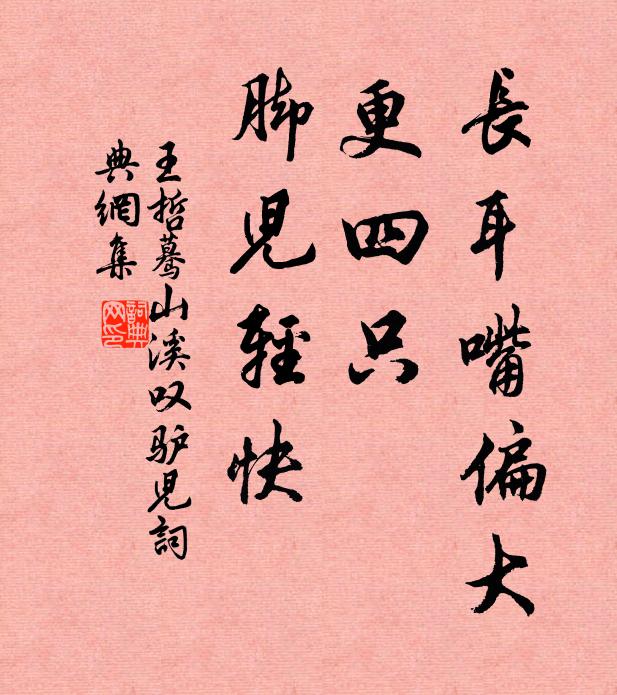 長耳嘴偏大
更四只
脚児輕快
王哲驀山溪叹驴児詞
典網集
詞典网印